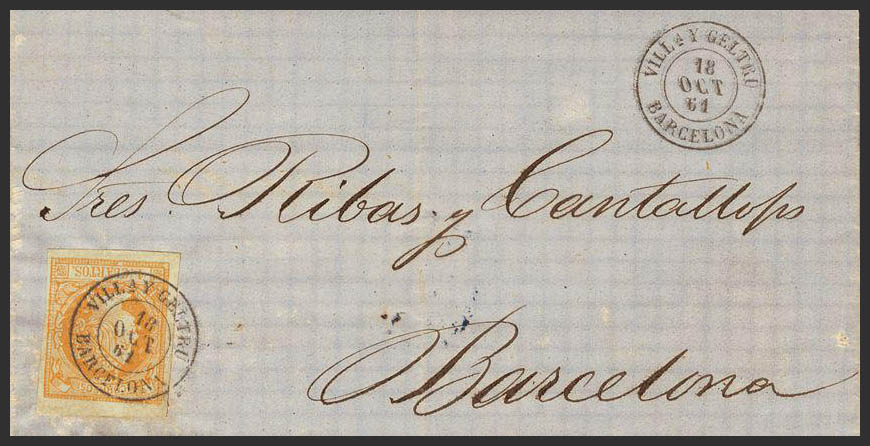 VILLA Y GELTRU
18
OCT
61
BARCELONA
Sres. Ribas y Cantallops
Barcelona
CUARTOS.
VILLA Y GELTRU
18
OCT
61
BARCELONA